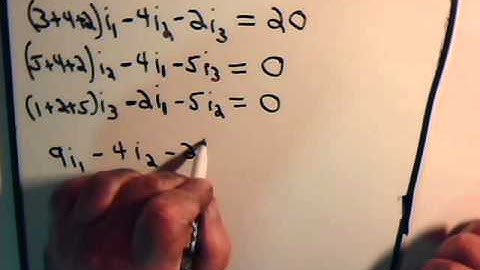 (3+4+2)i₁-4i₂-2i₃ = 20
(5+4+2)i₂-4i₁-5i₃ = 0
(1+2+5)i₃-2i₁-5i₂ = 0
9i₁-4i₂-2